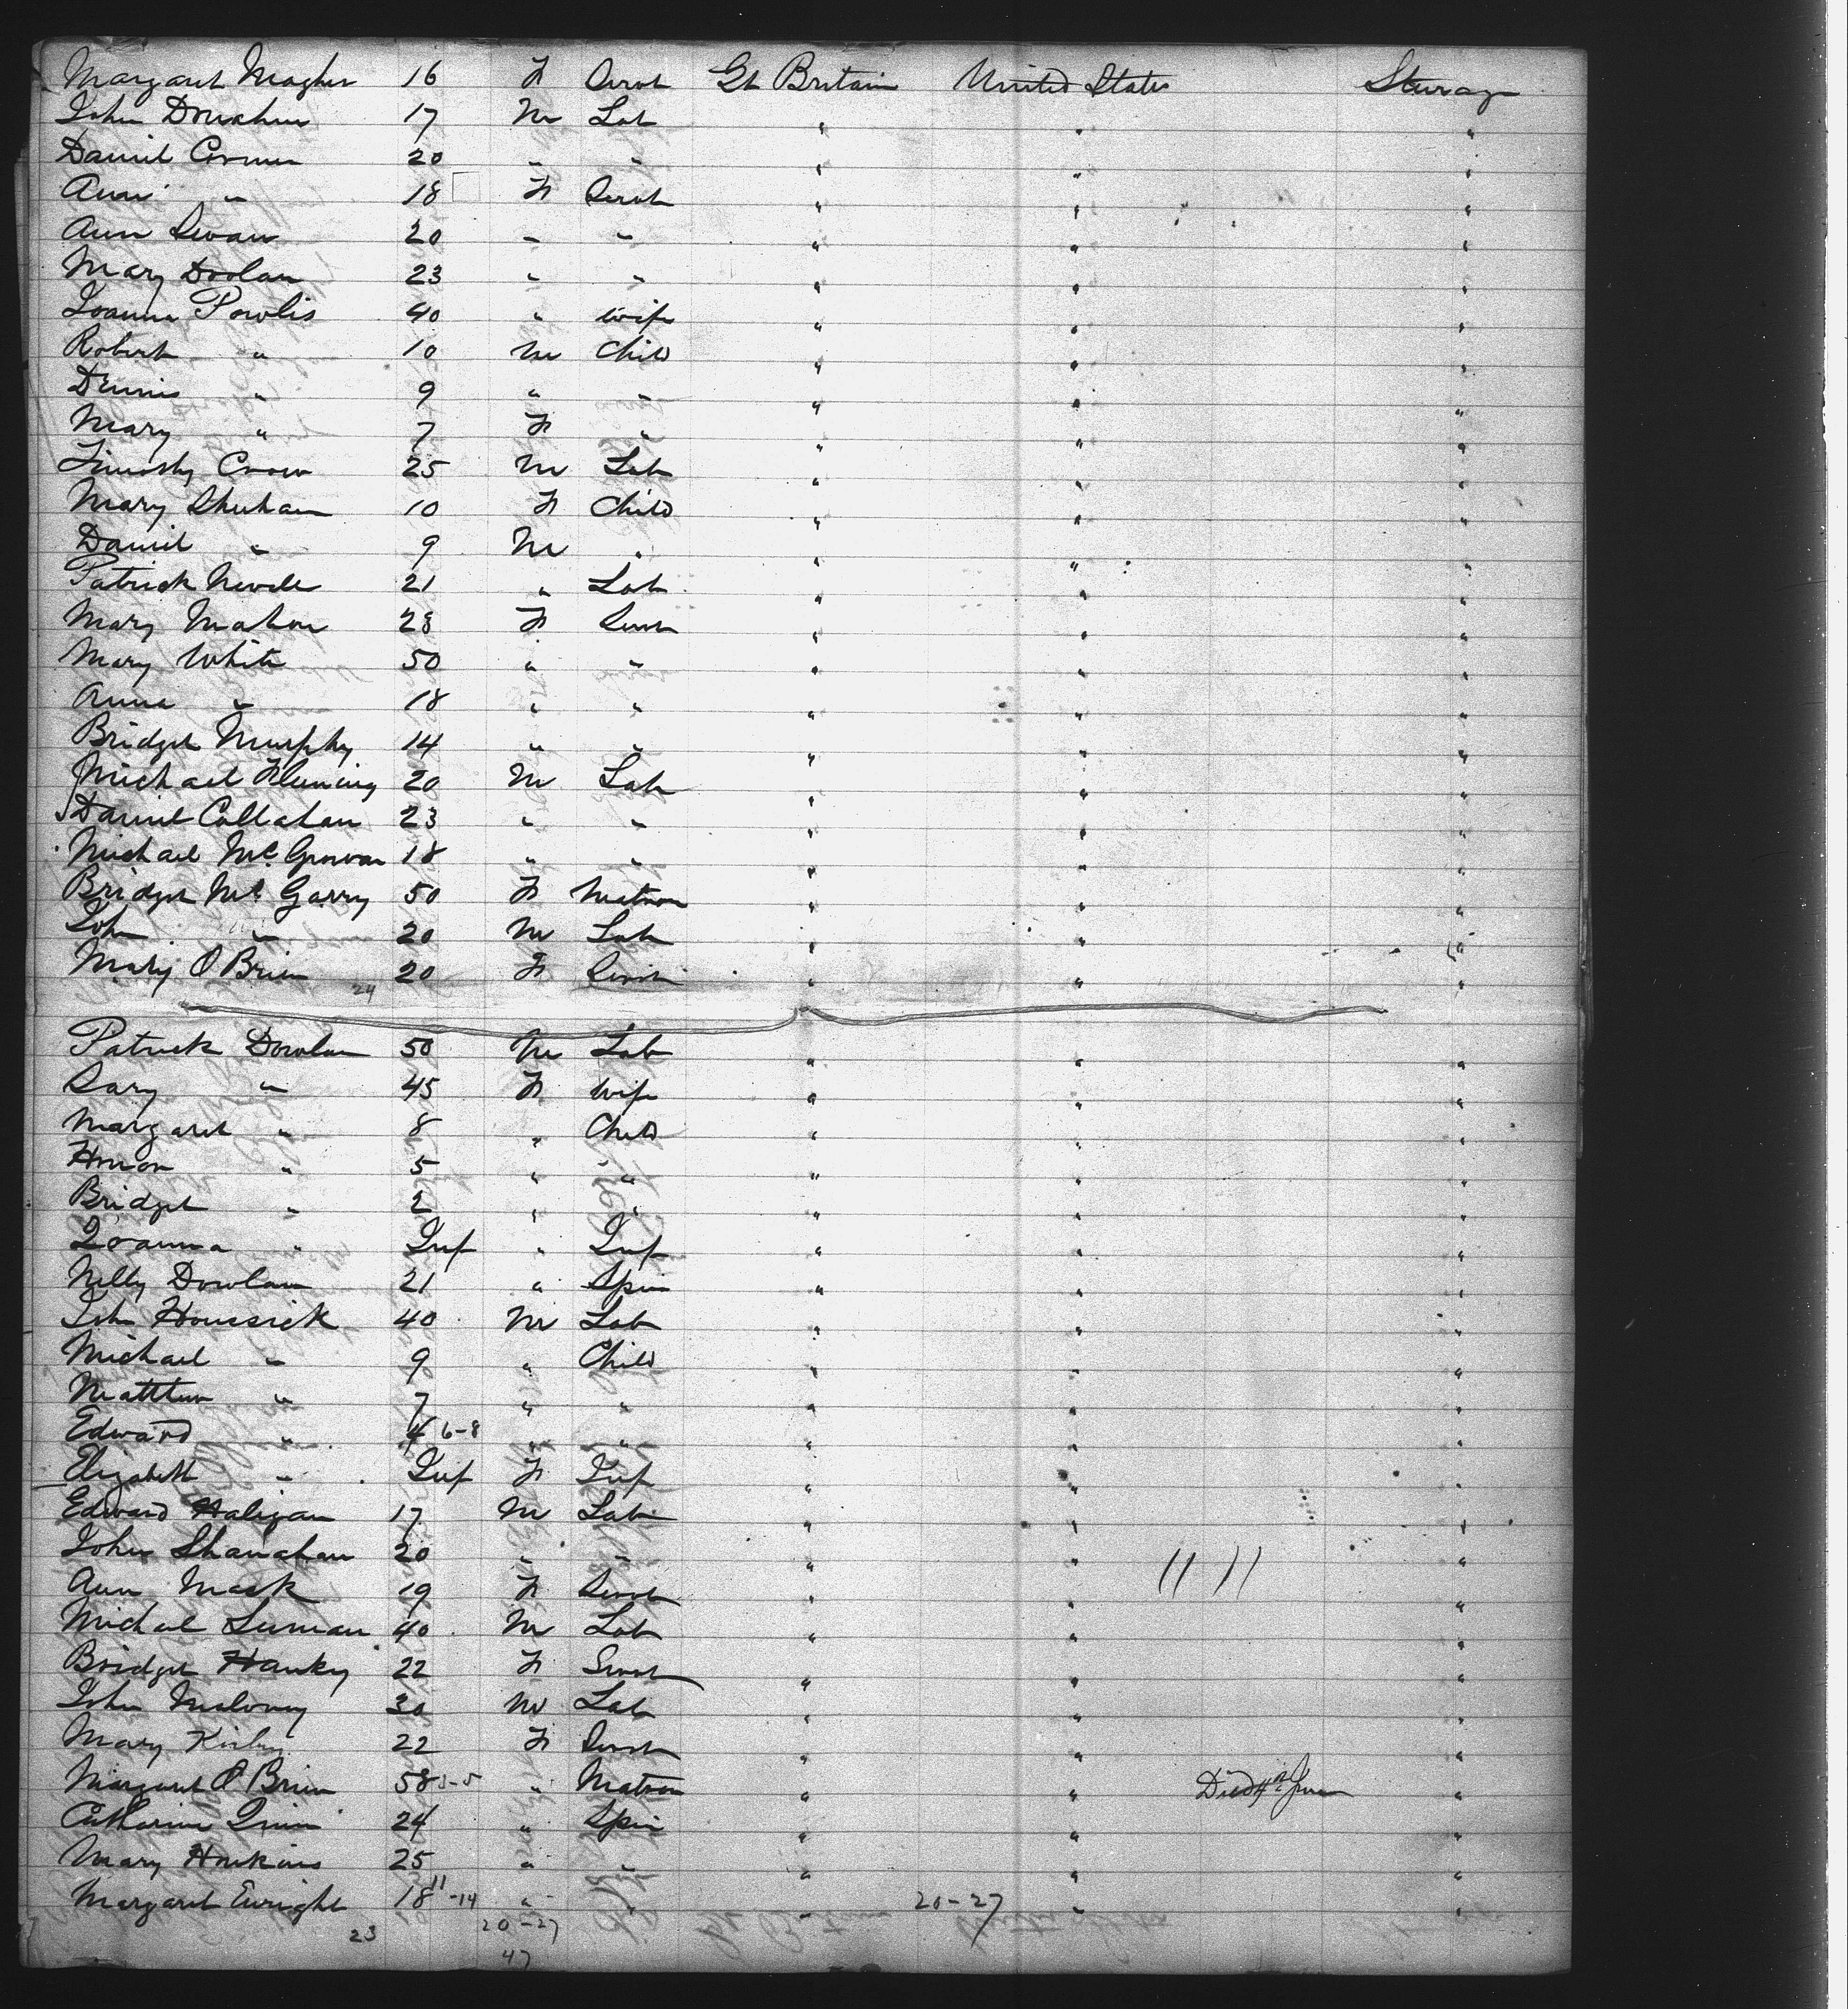 Margaret Magher 16 F Servt Gt Britain United States Steerage
John Donahue 17 M Lab " " "
Daniel Connor 20 " " " " "
Ann " 18 F Servt " " "
Ann Swan 20 " " " " "
Mary Doolan 23 " " " " "
Joanna Powlis 40 " wife " " "
Robert " 10 M Child " " "
Dennis " 9 " " " " "
Mary " 7 F " " " "
Timothy Crow 25 M Lab " " "
Mary Sheehan 10 F Child " " "
Daniel " 9 M " " " "
Patrick 21 " Lab " " "
Mary Mahon 23 F Servt " " "
Mary White 50 " " " " "
Anna " 18 " " " " "
Bridget Murphy 14 " " " " "
Michael Fleming 20 M Lab " " "
Daniel Callahan 23 " " " " "
Michael McGowan 18 " " " " "
Bridget McGarry 50 F Matron " " "
John " 20 M Lab " " "
Mary O Brien 20 F Servt " " "
24
Patrick Dowlan 50 M Lab " " "
Sary " 45 F wife " " "
Margaret " 8 " Child " " "
Honor " 5 " " " " "
Bridget " 2 " " " " "
Joanna " Inf " Inf " " "
Nelly Dowlan 21 " Spin " " "
John Houssick 40 M Lab " " "
Michael " 9 " Child " " "
Matthew " 7 " " " " "
Edward " 4 6-8 " " " " "
Elizabeth " Inf F Inf " " "
Edward Haligan 17 M Lab " " "
John Shanahan 20 " " " " "
Ann Mack 19 F Servt " " "
Michael Leeman 40 M Lab " " "
Bridget Hanky 22 F Servt " " "
John Maloney 30 M Lab " " "
Mary Kirby 22 F Servt " " "
Margaret O Brien 58 " Matron " " Died June "
Catharine Quinn 24 " Spin " " "
Mary Honkins 25 " " " " "
Margaret Enright 18 11-14 " " " 20-27 " "
23 20-27
47